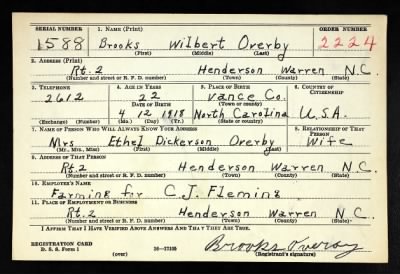 SERIAL NUMBER 1. NAME (Print) ORDER NUMBER
1588 Brooks Wilbert Overby 2224
(First) (Middle) (Last)
2. ADDRESS (Print)
Rt. 2 Henderson Warren N.C.
(Number and street or R. F. D. number) (Town) (County) (State)
3. TELEPHONE 4. AGE IN YEARS 5. PLACE OF BIRTH 6. COUNTRY OF CITIZENSHIP
2612 22 Vance Co.
DATE OF BIRTH (Town or county)
4 12 1918 North Carolina U.S.A.
(Exchange) (Number) (Mo.) (Day) (Yr.) (State or country)
7. NAME OF PERSON WHO WILL ALWAYS KNOW YOUR ADDRESS 8. RELATIONSHIP OF THAT PERSON
Mrs Ethel Dickerson Overby Wife
(Mr., Mrs., Miss) (First) (Middle) (Last)
9. ADDRESS OF THAT PERSON
Rt. 2 Henderson Warren N C.
(Number and street or R. F. D. number) (Town) (County) (State)
10. EMPLOYER'S NAME
Farming for C.J. Fleming
11. PLACE OF EMPLOYMENT OR BUSINESS
Rt. 2 Henderson Warren N C.
(Number and street or R. F. D. number) (Town) (County) (State)
I AFFIRM THAT I HAVE VERIFIED ABOVE ANSWERS AND THAT THEY ARE TRUE.
REGISTRATION CARD
D. S. S. Form 1 16—17105 Brooks Overby
(over) (Registrant's signature)